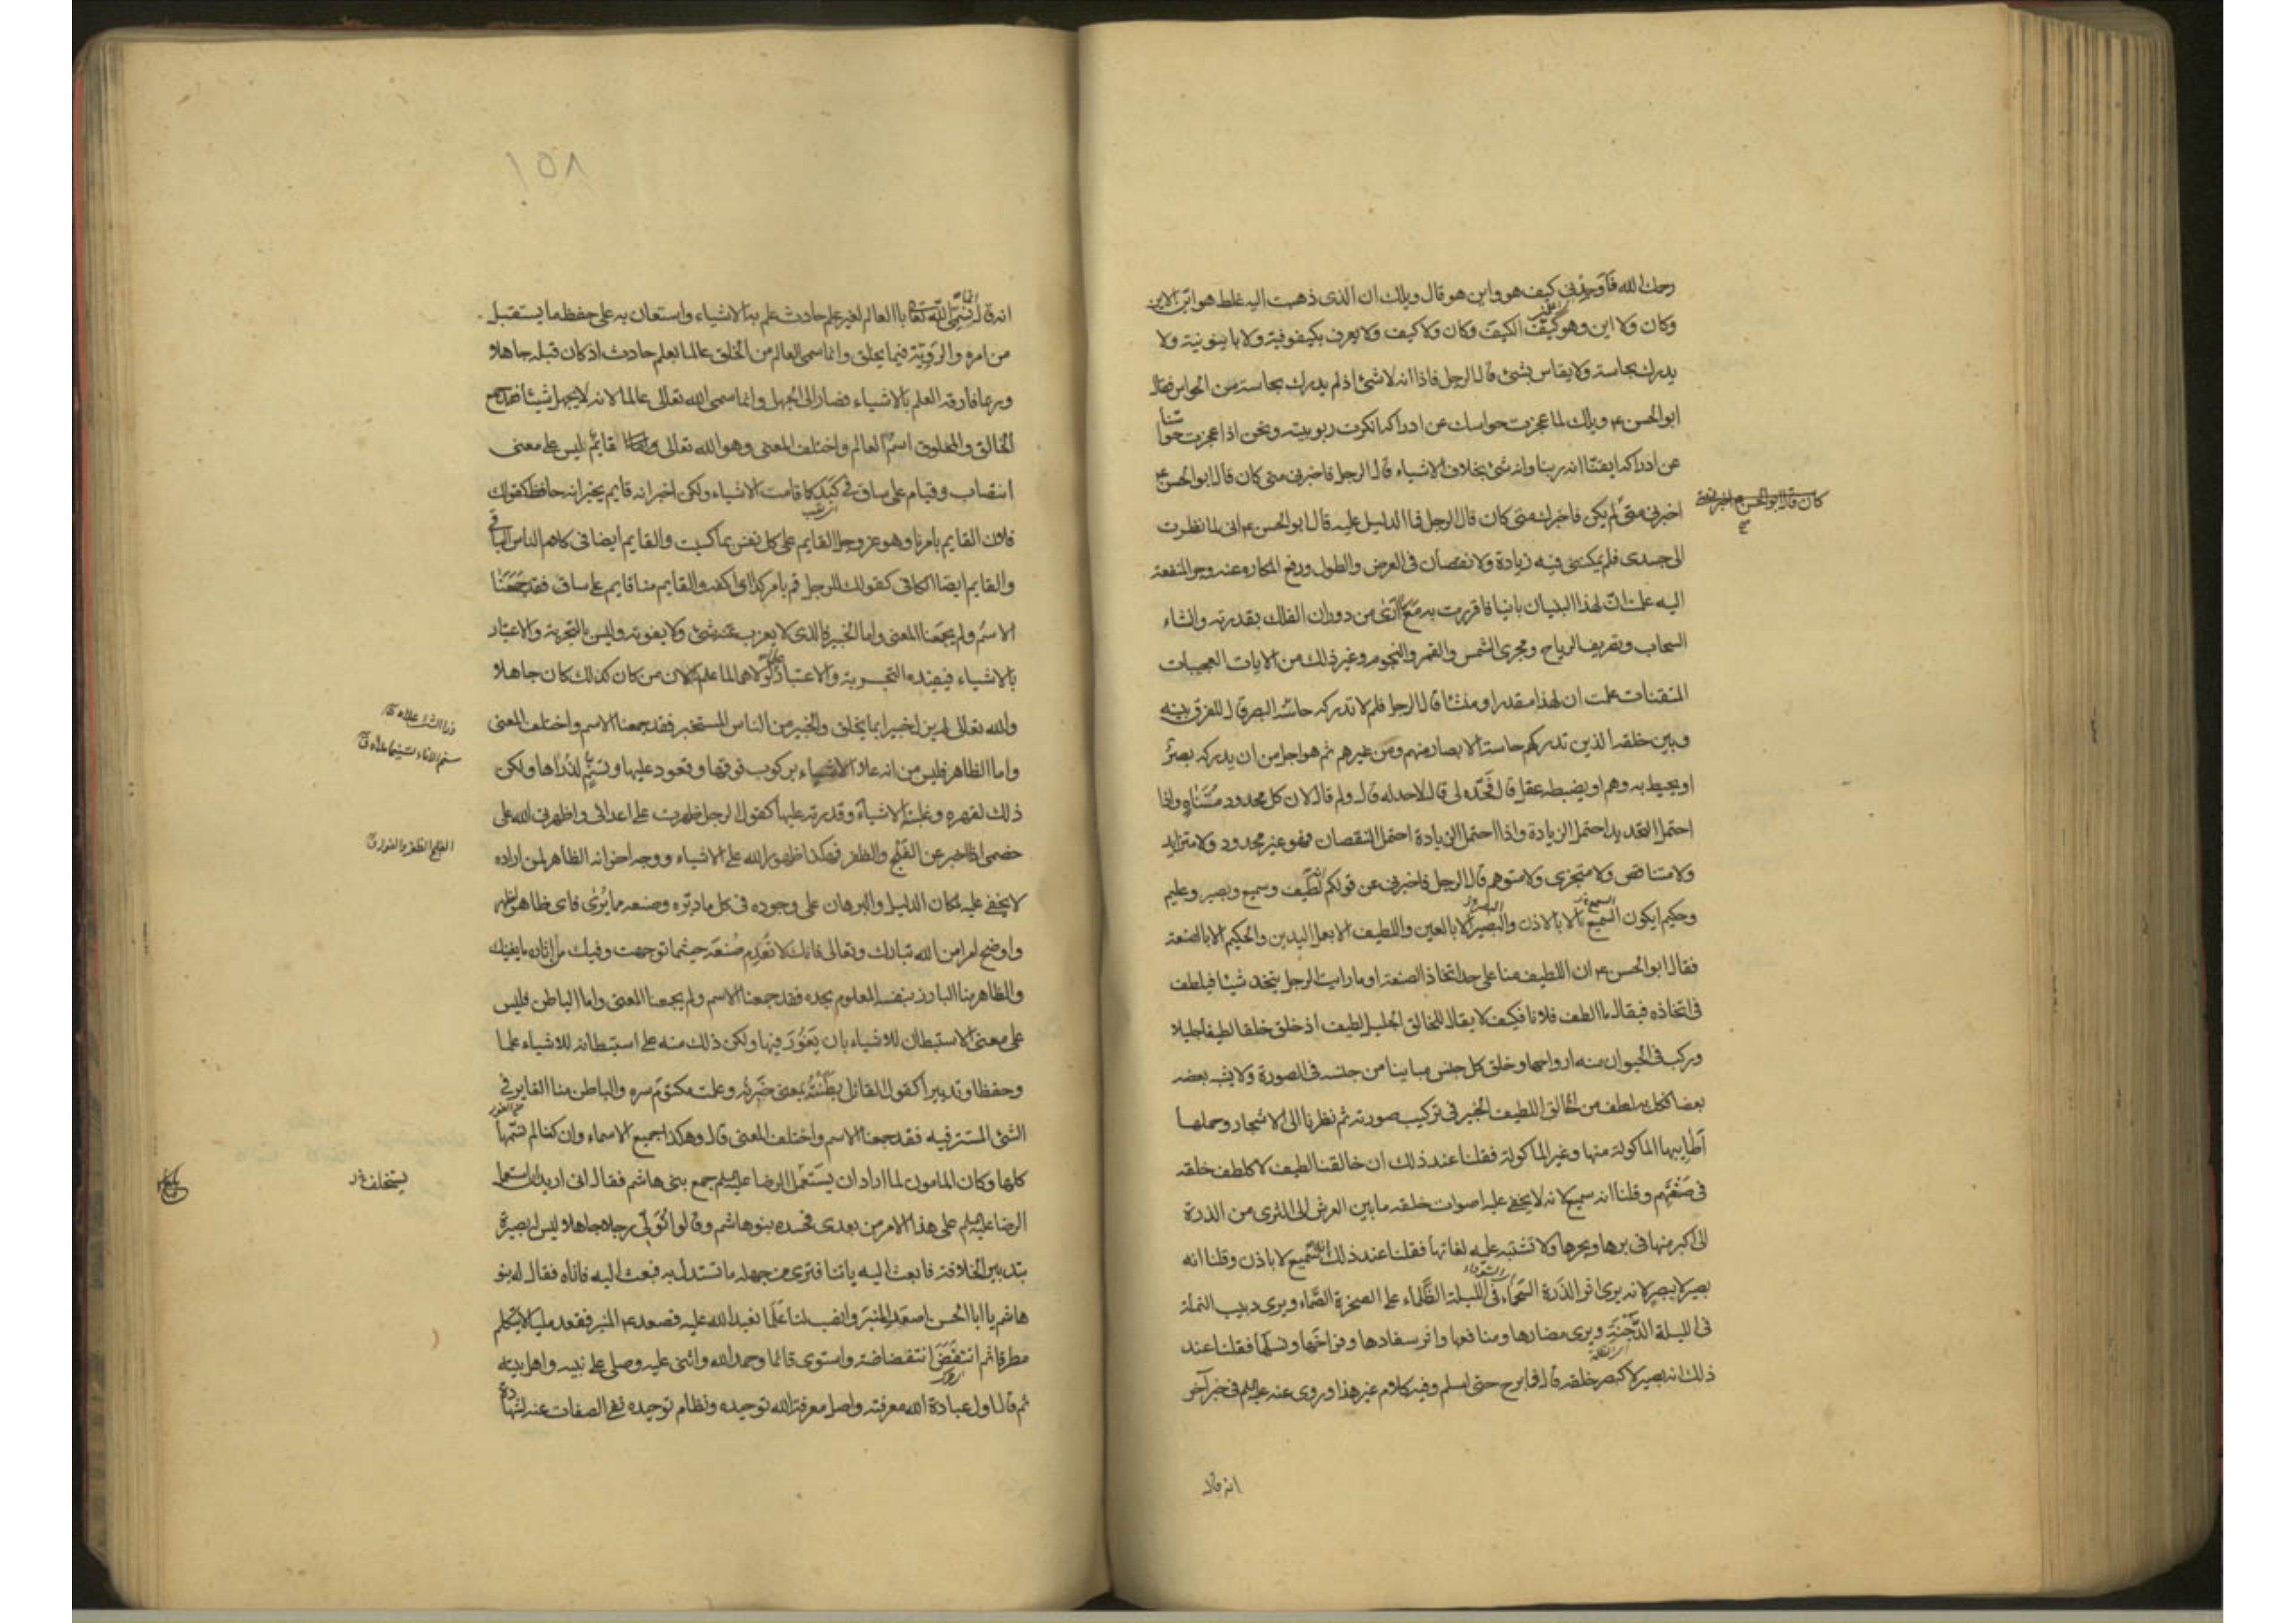 رحمك الله فأوجدني كيف هو واين هو قال ويلك ان الذي ذهبت اليه غلط هو اين الاين
وكان ولا اين وهو كيّف الكيف وكان ولا كيف ولا يعرف بكيفوفية ولا باينونية ولا
يدرك بحاسة ولا يقاس بشئ قال الرجل فاذا انه لا شئ اذ لم يدرك بحاسة من الحواس فقال
ابو الحسن ع ويلك لما عجزت حواسك عن ادراكه انكرت ربوبيته ونحن اذا عجزت حواسنا
عن ادراكه ايقنا انه ربنا وانه شئ بخلاف الاشياء قال الرجل فاخبرني متى كان قال ابو الحسن ع
اخبرني متى لم يكن فاخبرك متى كان قال الرجل فما الدليل عليه قال ابو الحسن ع اني لما نظرت
الى جسدي فلم يمكنني فيه زيادة ولا نقصان في العرض والطول ودفع المكاره عنه وجر المنفعة
اليه علمت ان لهذا البنيان بانيا فاقررت به مع ما ارى من دوران الفلك بقدرته وانشاء
السحاب وتصريف الرياح ومجرى الشمس والقمر والنجوم وغير ذلك من الايات العجيبات
المتقنات علمت ان لهذا مقدرا ومنشئا قال الرجل فلم لا تدركه حاسة البصر قال للفرق بينه
وبين خلقه الذين تدركهم حاسة الابصار منهم ومن غيرهم ثم هو اجل من ان يدركه بصر
او يحيط به وهم او يضبطه عقل قال فحدّه لي قال لا حد له قال ولم قال لان كل محدود متناه واذا
احتمل التحديد احتمل الزيادة واذا احتمل الزيادة احتمل النقصان فهو غير محدود ولا متزايد
ولا متناقص ولا متجزي ولا متوهم قال الرجل فاخبرني عن قولكم لطيف وسميع وبصير وعليم
وحكيم ايكون السميع الا بالاذن والبصير الا بالعين واللطيف الا بعمل اليدين والحكيم الا بالصنعة
فقال ابو الحسن ع ان اللطيف منا على حد اتخاذ الصنعة او ما رايت الرجل يتخذ شيئا فيلطف
في اتخاذه فيقال ما الطف فلانا فكيف لا يقال للخالق الجليل لطيف اذ خلق خلقا لطيفا جليلا
وركب في الحيوان منه ارواحها وخلق كل جنس مباينا من جنسه في الصورة ولا يشبه بعضه
بعضا فكل له لطف من الخالق اللطيف الخبير في تركيب صورته ثم نظرنا الى الاشجار وحملها
أطايبها الماكولة منها وغير الماكولة فقلنا عند ذلك ان خالقنا لطيف لا كلطف خلقه
في صنعتهم وقلنا انه سميع لانه لا يخفى عليه اصوات خلقه ما بين العرش الى الثرى من الذرة
الى اكبر منها في برها وبحرها ولا تشتبه عليه لغاتها فقلنا عند ذلك انه سميع لا باذن وقلنا انه
بصير لا ببصر لانه يرى اثر الذرة السحماء في الليلة الظلماء على الصخرة الصماء ويرى دبيب النملة
في الليلة الدجنة ويرى مضارها ومنافعها واثر سفادها وفراخها ونسلها فقلنا عند
ذلك انه بصير لا كبصر خلقه قال فما برح حتى اسلم وفيه كلام غير هذا وروي عنه عليه السلم في خبر آخر
انه قال
١٥٨
انه قال انما سمي الله تعالى بالعالم لغير علم حادث علم به الاشياء واستعان به على حفظ ما يستقبل
من امره والروية فيما يخلق وانما سمي العالم من الخلق عالما بعلم حادث اذ كان قبله جاهلا
وربما فارقه العلم بالاشياء فصار الى الجهل وانما سمي الله تعالى عالما لانه لا يجهل شيئا فقد جمع
الخالق والمخلوق اسم العالم واختلف المعنى وهو الله تعالى قائم ليس على معنى
انتصاب وقيام على ساق في كبد كما قامت الاشياء ولكن اخبر انه قايم يخبر انه حافظ كقولك
فلان القايم بامرنا وهو عز وجل القايم على كل نفس بما كسبت والقايم ايضا في كلام الناس الباقي
والقايم ايضا الكافي كقولك للرجل قم بامر كذا اي اكفه والقايم منا قايم على ساق فقد جمعنا
الاسم ولم يجمعنا المعنى واما الخبير فالذي لا يعزب عنه شئ ولا يفوته وليس بالتجربة والاعتبار
بالاشياء فيفيده التجربة والاعتبار علما لولاهما لما علم لان من كان كذلك كان جاهلا
والله تعالى لم يزل خبيرا بما يخلق والخبير من الناس المستخبر فقد جمعنا الاسم واختلف المعنى
واما الظاهر فليس من انه علا الاشياء بركوب فوقها وقعود عليها وتسنم لذراها ولكن
ذلك لقهره وغلبته الاشياء وقدرته عليها كقول الرجل ظهرت على اعدائي واظهرني الله على
خصمي اذا اخبر عن الفلج والظفر فهكذا ظهور الله على الاشياء ووجه اخر انه الظاهر لمن اراده
لا يخفى عليه لمكان الدليل والبرهان على وجوده في كل ما دبره وصنعه مما يُرى فاي ظاهر اظهر
واوضح امرا من الله تبارك وتعالى فانك لا تعدم صنعته حيثما توجهت وفيك من اثاره ما يغنيك
والظاهر منا البارز بنفسه المعلوم بحده فقد جمعنا الاسم ولم يجمعنا المعنى واما الباطن فليس
على معنى الاستبطان للاشياء بان يغور فيها ولكن ذلك منه على استبطانه للاشياء علما
وحفظا وتدبيرا كقول القائل بطنته بمعنى خبرته وعلمت مكتوم سره والباطن منا الغاير في
الشئ المستتر فيه فقد جمعنا الاسم واختلف المعنى قال وهكذا جميع الاسماء وان كنا لم نسمها
كلها وكان المامون لما اراد ان يستعمل الرضا عليه السلم جمع بني هاشم فقال اني اريد ان استعمل
الرضا عليه السلم على هذا الامر من بعدي فحسده بنو هاشم وقالوا تولي رجلا جاهلا ليس له بصيرة
بتدبير الخلافة فابعث اليه ياتنا فترى من جهله ما تستدل به فبعث اليه فاتاه فقال له بنو
هاشم يا ابا الحسن اصعد المنبر وانصب لنا علما نعبد الله عليه فصعد ع المنبر فقعد مليا لا يتكلم
مطرقا ثم انتفض انتفاضة واستوى قائما وحمد الله واثنى عليه وصلى على نبيه واهل بيته
ثم قال اول عبادة الله معرفته واصل معرفة الله توحيده ونظام توحيده نفي الصفات عنه لشهادة
يستخلف